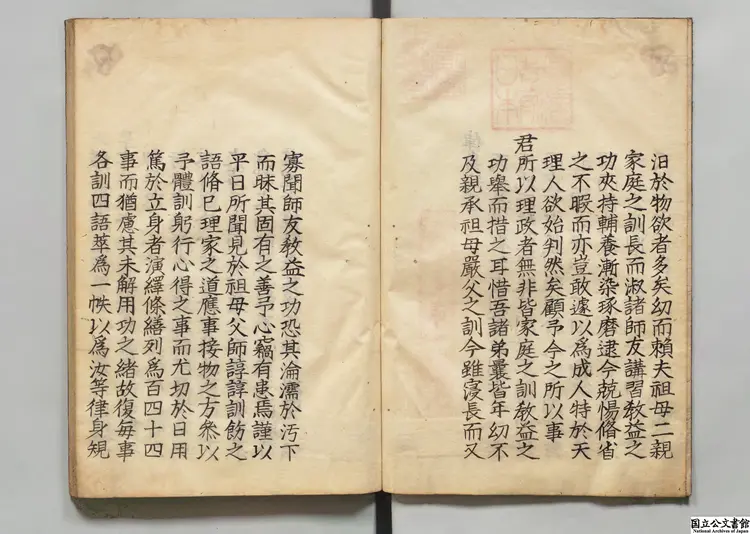 汨於物欲者多矣幼而賴夫祖母二親
家庭之訓長而淑諸師友講習教益之
功夾持輔養漸染琢磨逮今兢惕脩省
之不暇而亦豈敢遽以爲成人特於天
理人欲始判然矣顧予今之所以事
君所以理政者無非皆家庭之訓教益之
功舉而措之耳惜吾諸弟曩皆年幼不
及親承祖母嚴父之訓今雖寖長而又
寡聞師友教益之功恐其淪濡於汚下
而昧其固有之善予心竊有患焉謹以
平日所聞見於祖母父師諄諄訓飭之
語脩己理家之道應事接物之方叅以
予體訓躬行心得之事而尤切於日用
篤於立身者演繹條繕列爲百四十四
事而猶慮其未解用功之緒故復每事
各訓四語萃爲一帙以爲汝等律身規
国立公文書館
National Archives of Japan